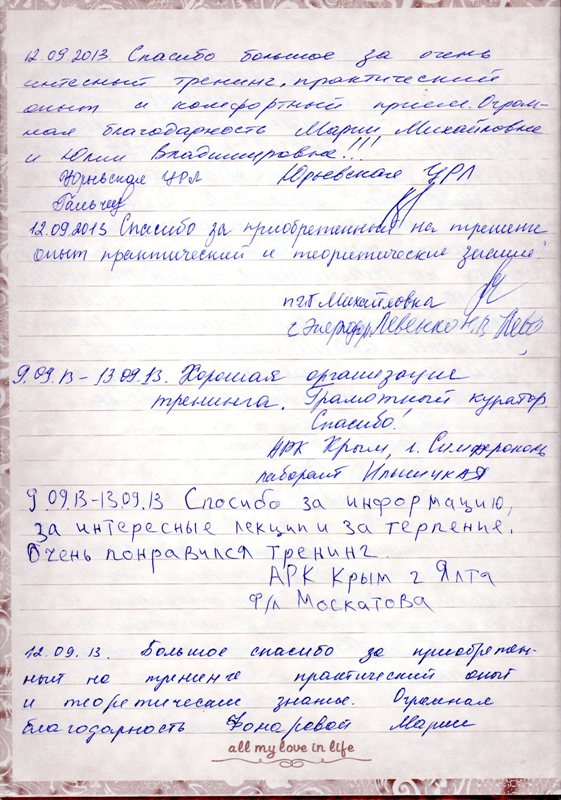 12.09.2013. Спасибо большое за очень
интесный тренинг, практический
опыт и комфортный прием. Огром-
ная благодарность Марии Михайловне
и Юлии Владимировне!!!
Юрьевская ЦРЛ Юрьевская ЦРЛ
12.09.2013 Спасибо за приобретенный на тренинге
опыт практический и теоритические знания!
пгт Михайловка
Левенко Н.В.
9.09.13 – 13.09.13. Хорошая организация
тренинга. Грамотный куратор.
Спасибо!
АРК Крым, г. Симферополь
лаборант
9.09.13-13.09.13 Спосибо за информацию,
за интересные лекции и за терпение.
Очень понравился тренинг.
АРК Крым г Ялта
ф/л Москатова
12.09.13. Большое спасибо за приобретен-
ный на тренинге практический опыт
и теоретические знанье. Огромная
благодарность Фонаровой Марии
all my love in life